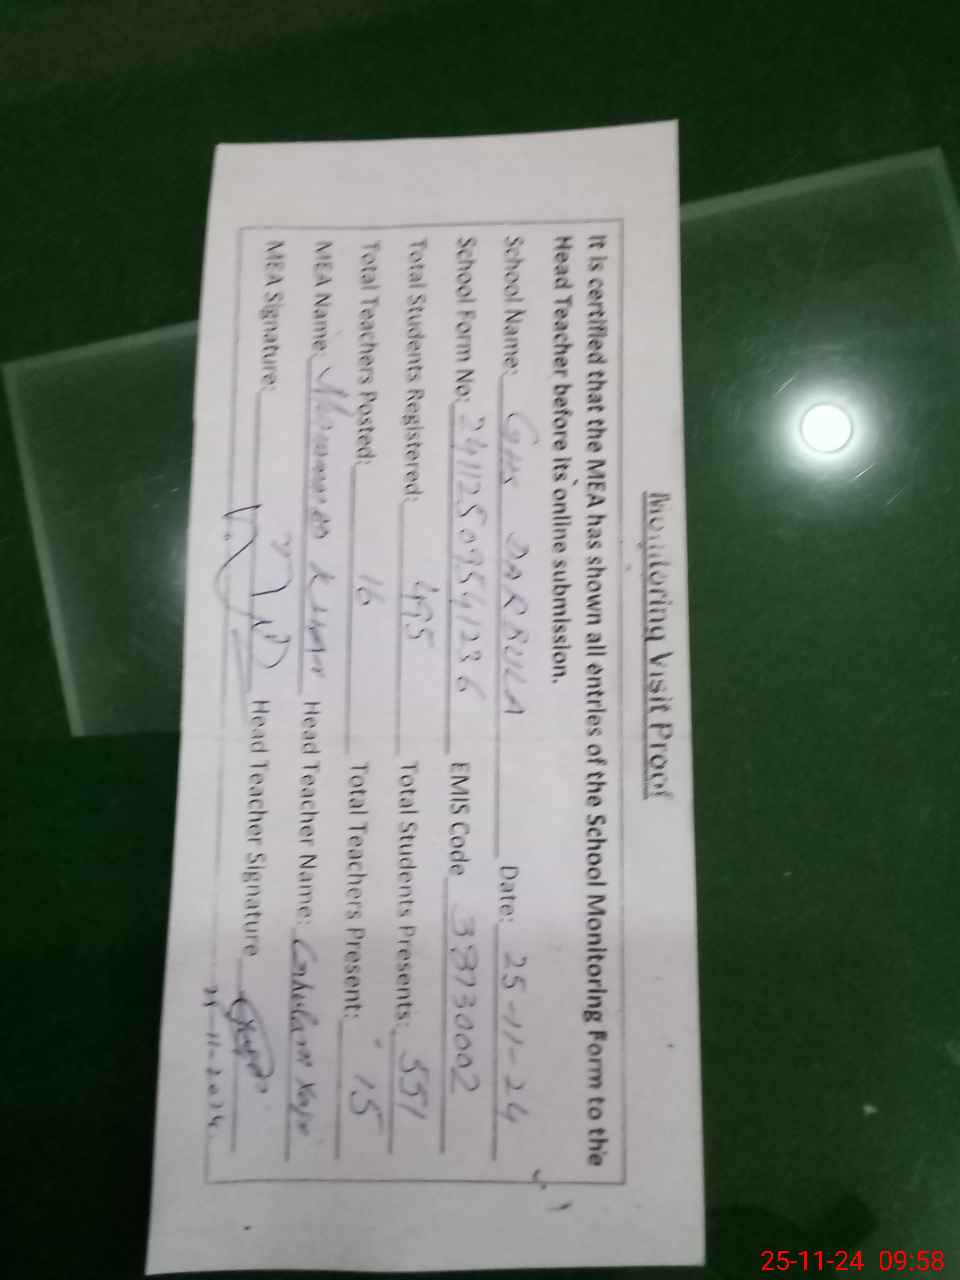 Monitoring Visit Proof
It is certified that the MEA has shown all entries of the School Monitoring Form to the
Head Teacher before its online submission.
School Name: GHS DARBULA Date: 25-11-24
School Form No: EMIS Code
Total Students Registered: 495 Total Students Presents:
Total Teachers Posted: 16 Total Teachers Present: 15
MEA Name: Khan Head Teacher Name: Ghulam
MEA Signature: Head Teacher Signature
25-11-2024
25-11-24 09:58